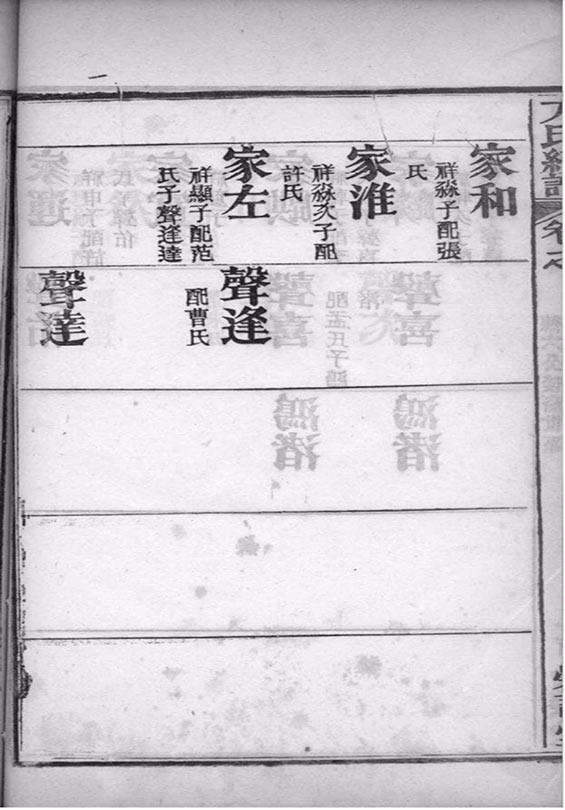 家和
祥淼子配張
氏
家淮
祥淼次子配
許氏
家左
祥顯子配范
氏子聲逢達
聲逢
配曹氏
聲達